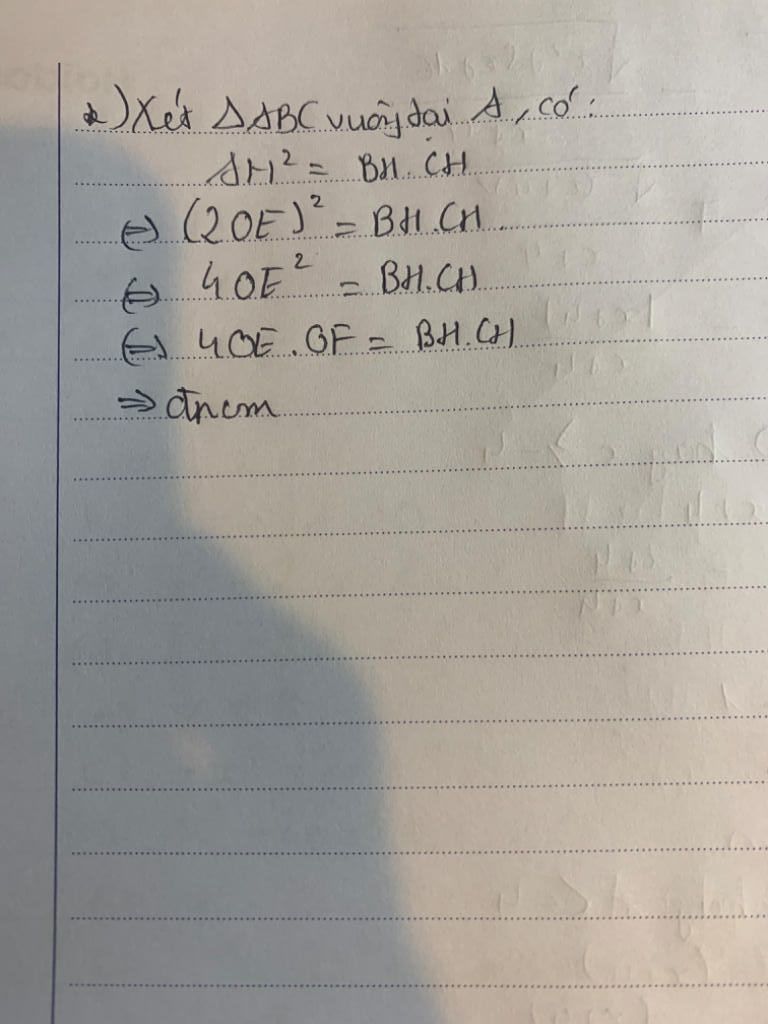 a) Xét ΔABC vuông tại A, có:
AH² = BH.CH
⇔ (2OE)² = BH.CH
⇔ 4OE² = BH.CH
⇔ 4OE.OF = BH.CH
⇒ đpcm